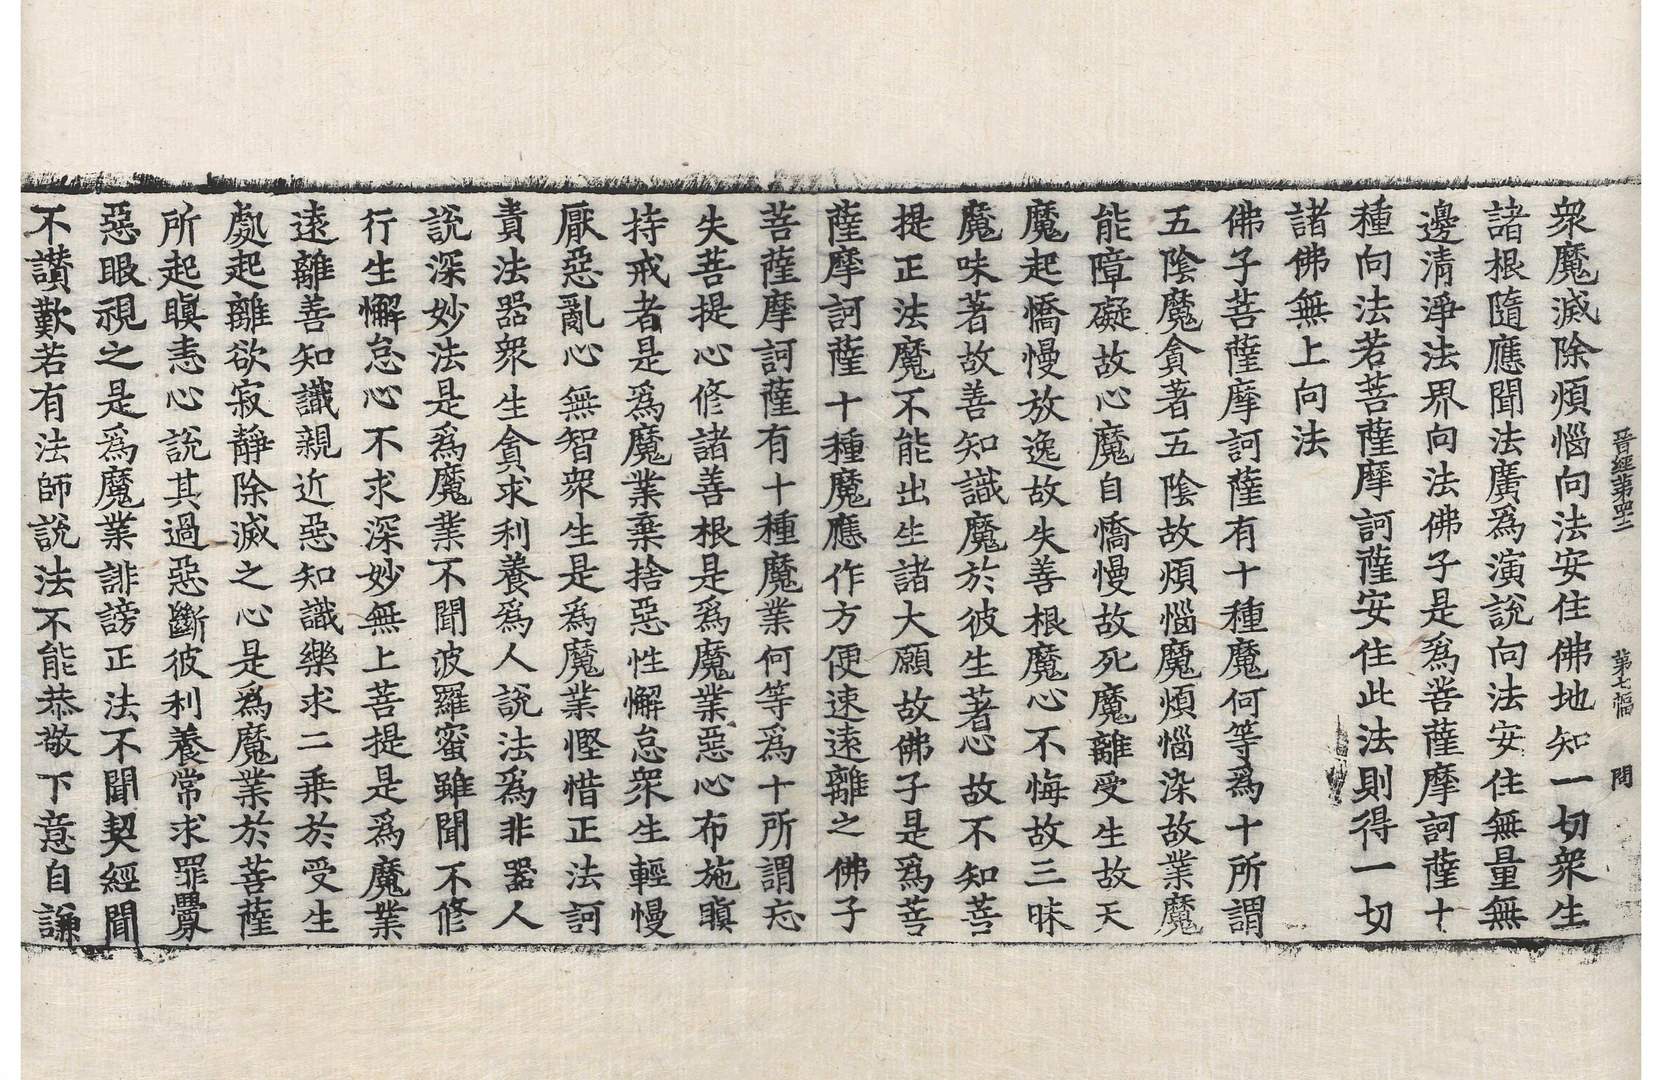 晋經第四十二　第七幅　問
衆魔滅除煩惱向法安住佛地知一切衆生
諸根隨應聞法廣爲演說向法安住無量無
邊清淨法界向法佛子是爲菩薩摩訶薩十
種向法若菩薩摩訶薩安住此法則得一切
諸佛無上向法
佛子菩薩摩訶薩有十種魔何等爲十所謂
五陰魔貪著五陰故煩惱魔煩惱染故業魔
能障礙故心魔自憍慢故死魔離受生故天
魔起憍慢放逸故失善根魔心不悔故三昧
魔味著故善知識魔於彼生著心故不知菩
提正法魔不能出生諸大願故佛子是爲菩
薩摩訶薩十種魔應作方便速遠離之佛子
菩薩摩訶薩有十種魔業何等爲十所謂忘
失菩提心修諸善根是爲魔業惡心布施瞋
持戒者是爲魔業棄捨惡性懈怠衆生輕慢
厭惡亂心無智衆生是爲魔業慳惜正法訶
責法器衆生貪求利養爲人說法爲非器人
說深妙法是爲魔業不聞波羅蜜雖聞不修
行生懈怠心不求深妙無上菩提是爲魔業
遠離善知識親近惡知識樂求二乘於受生
處起離欲寂靜除滅之心是爲魔業於菩薩
所起瞋恚心說其過惡斷彼利養常求罪舋
惡眼視之是爲魔業誹謗正法不聞契經聞
不讃歎若有法師說法不能恭敬下意自謙